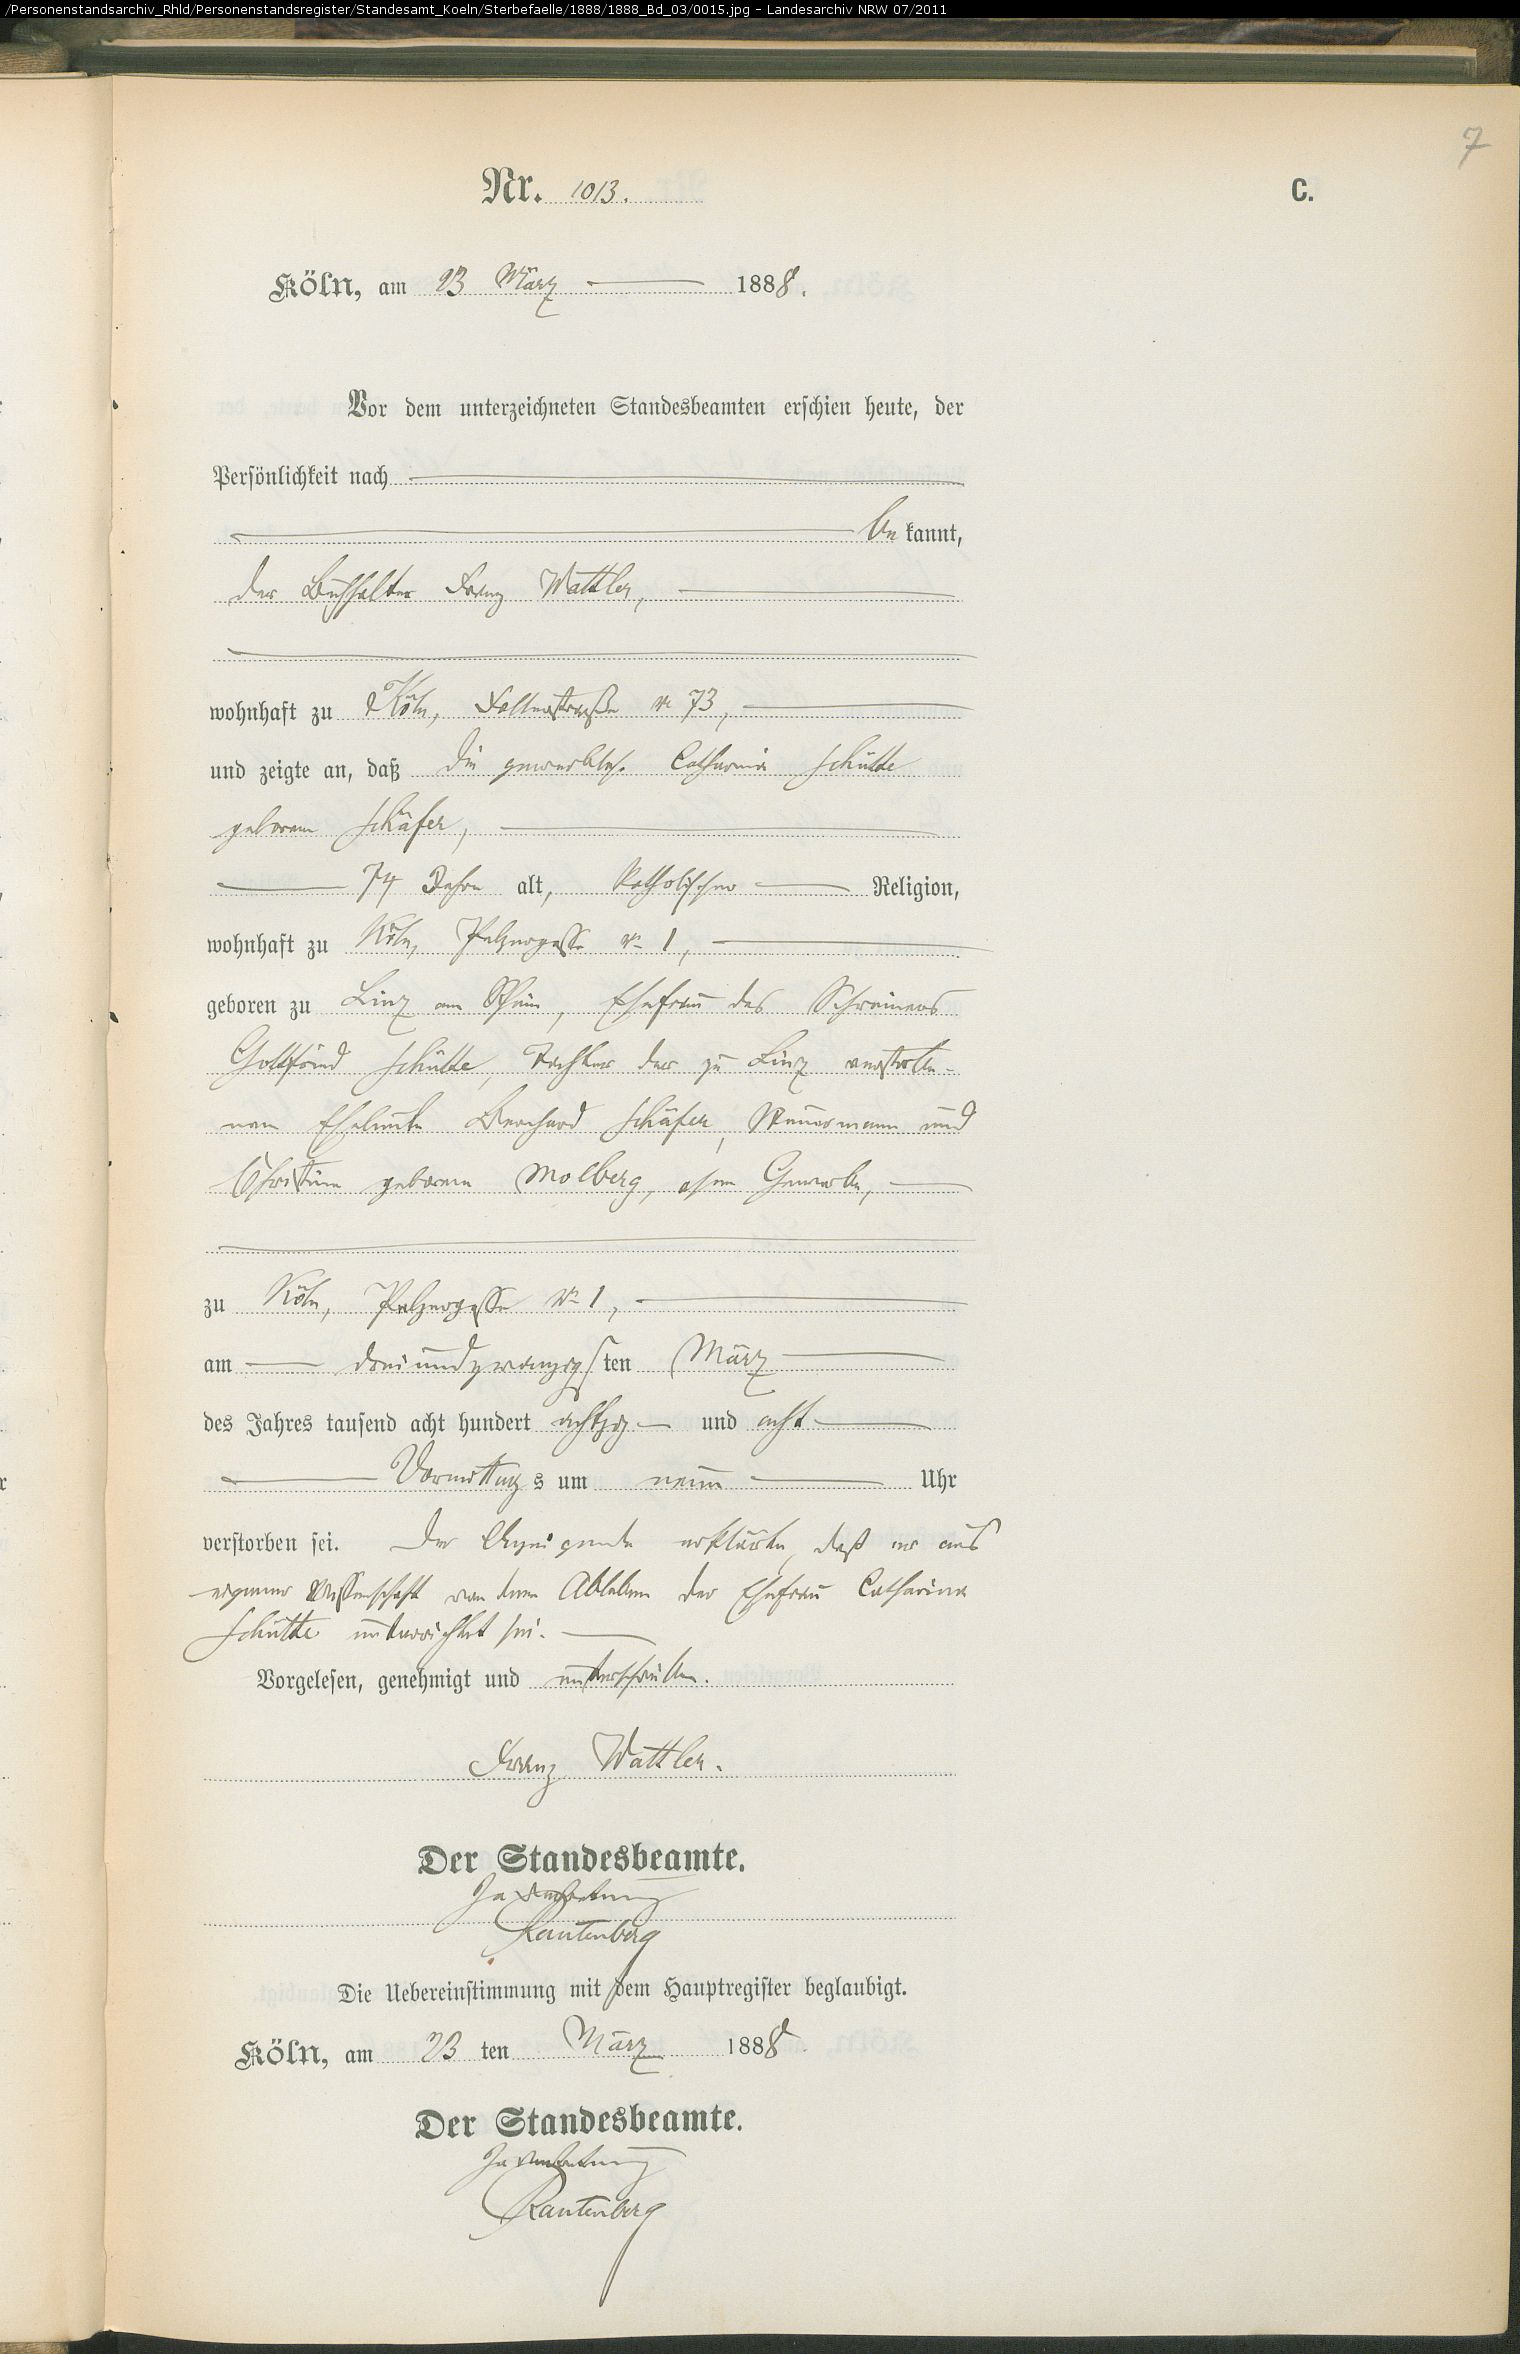 /Personenstandsarchiv_Rhld/Personenstandsregister/Standesamt_Koeln/Sterbefaelle/1888/1888_Bd_03/0015.jpg - Landesarchiv NRW 07/2011
7
Nr. 1013.
C.
Köln, am 23 März 1888.
Vor dem unterzeichneten Standesbeamten erschien heute, der
Persönlichkeit nach
be kannt,
der Buchhalter Franz Wattler,
wohnhaft zu Köln, 73,
und zeigte an, daß die gewerblos. Catharina Schütte
geborene Schäfer,
74 Jahre alt, katholischer Religion,
wohnhaft zu Köln, Pelzergasse No 1,
geboren zu Linz am Rhein, Ehefrau des Schreiners
Gottfried Schütte, Tochter der zu Linz verstorbe-
nen Eheleute Bernhard Schäfer, Steuermann und
Christine geborene Molberg, ohne Gewerbe,
zu Köln, Pelzergasse No 1,
am dreiundzwanzigsten März
des Jahres tausend acht hundert achtzig und acht
Vormittags um neun Uhr
verstorben sei. Der Anzeigende erklärte, daß er aus
eigener Wissenschaft von dem Ableben der Ehefrau Catharina
Schütte unterrichtet sei.
Vorgelesen, genehmigt und unterschrieben.
Franz Wattler.
Der Standesbeamte.
In Vertretung
Rautenberg
Die Uebereinstimmung mit dem Hauptregister beglaubigt.
Köln, am 23 ten März 1888
Der Standesbeamte.
In Vertretung
Rautenberg